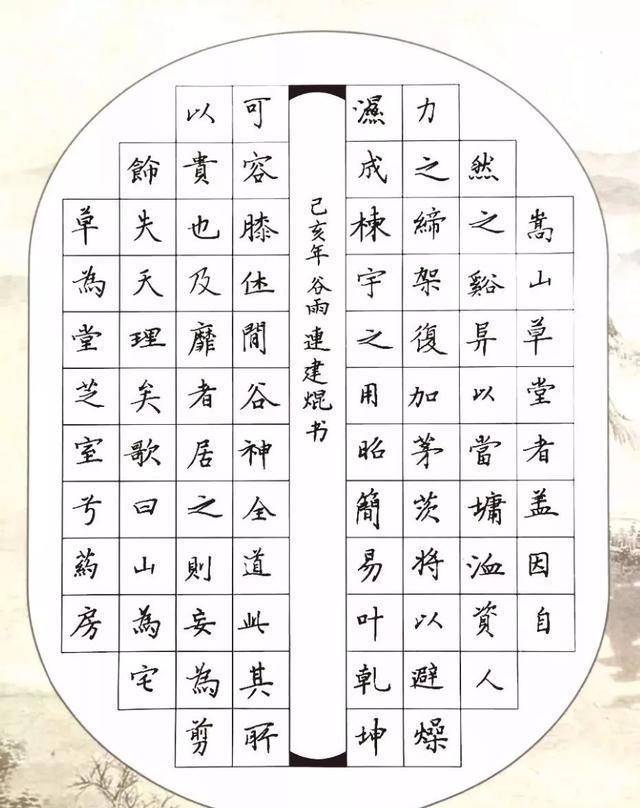 嵩山草堂者盖因自
然之谿异以當墉洫資人
力之締架復加茅茨將以避燥
濕成棟宇之用昭簡易叶乾坤
可容膝休閒谷神全道此其所
以貴也及靡者居之則妄為剪
飾失天理矣歌曰山為宅
草為堂芝室兮葯房
己亥年谷雨連建焜书